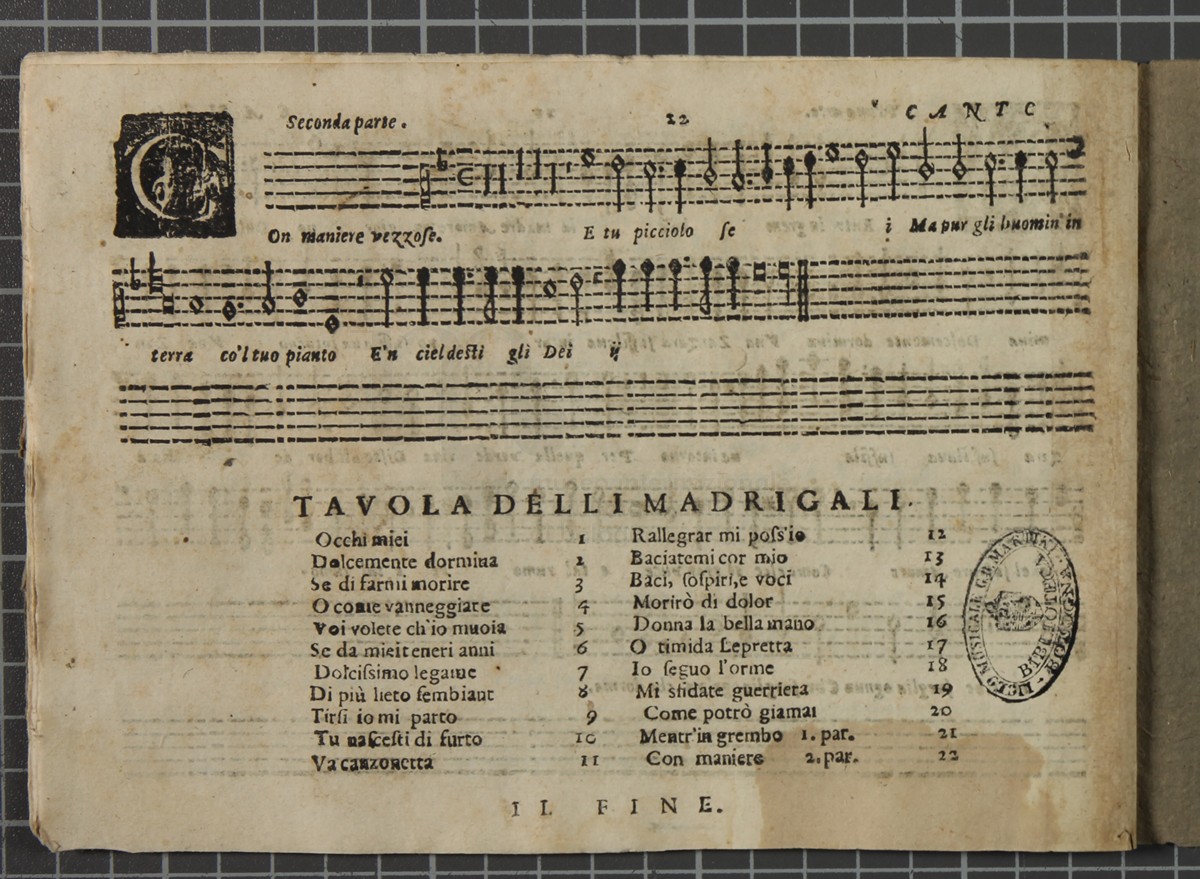 Seconda parte. 22 CANTO
COn maniere vezzose. E tu picciolo se i Ma pur gli huomin' in
terra co'l tuo pianto E'n ciel desti gli Dei ij
TAVOLA DELLI MADRIGALI.
Occhi miei 1
Dolcemente dormiua 2
Se di farmi morire 3
O come vanneggiate 4
Voi volete ch'io muoia 5
Se da miei teneri anni 6
Dolcissimo legame 7
Di più lieto sembiant 8
Tirsi io mi parto 9
Tu nascesti di furto 10
Va canzonetta 11
Rallegrar mi poss'io 12
Baciatemi cor mio 13
Baci, sospiri, e voci 14
Morirò di dolor 15
Donna la bella mano 16
O timida Lepretta 17
Io seguo l'orme 18
Mi sfidate guerriera 19
Come potrò giamai 20
Mentr'in grembo 1. par. 21
Con maniere 2. par. 22
IL FINE.
LICEO MUSICALE G.B. MARTINI. BOLOGNA
BIBLIOTECA